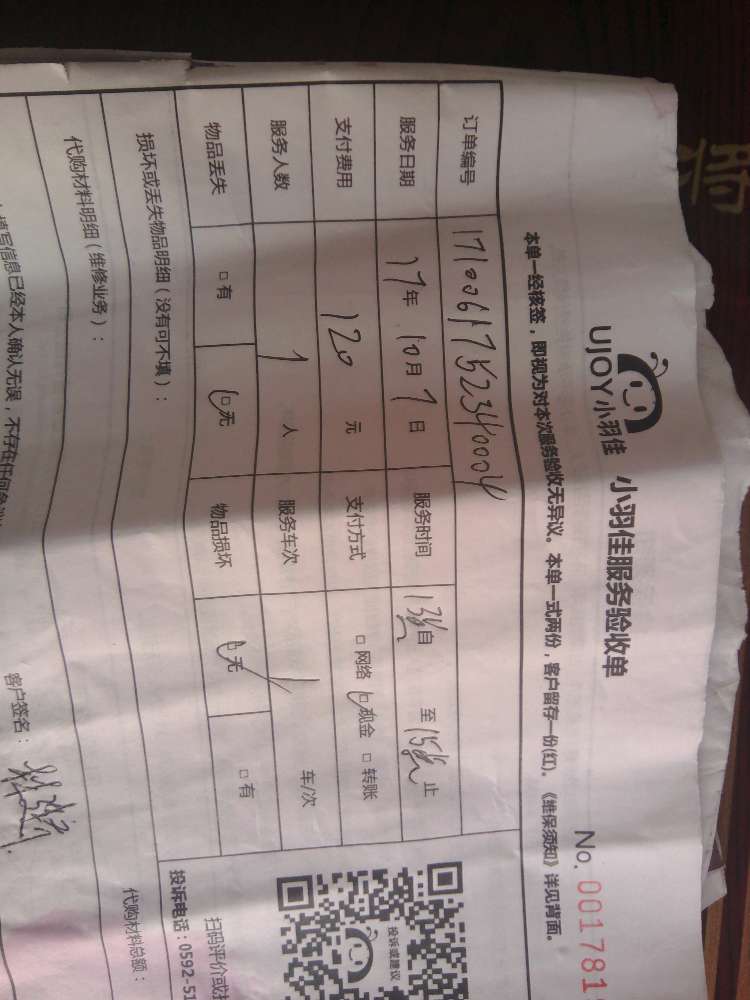 UJOY小羽佳 小羽佳服务验收单
No. 001781
本单一经核签，即视为对本次服务验收无异议。本单一式两份，客户留存一份(红)。《维保须知》详见背面。
订单编号 1710061752340004
服务日期 17年 10月 7日 服务时间 13点自 至 15点止
支付费用 120 元 支付方式 □ 网络 □ 现金 □ 转账
服务人数 1 人 服务车次 / 车/次
物品丢失 □ 有 □ 无 物品损坏 □ 无 □ 有
损坏或丢失物品明细（没有可不填）：
代购材料明细（维修业务）：
代购材料总额：
投诉或建议
扫码评价或
投诉电话：0592-51
填写信息已经本人确认无误，不存在任何
客户签名：